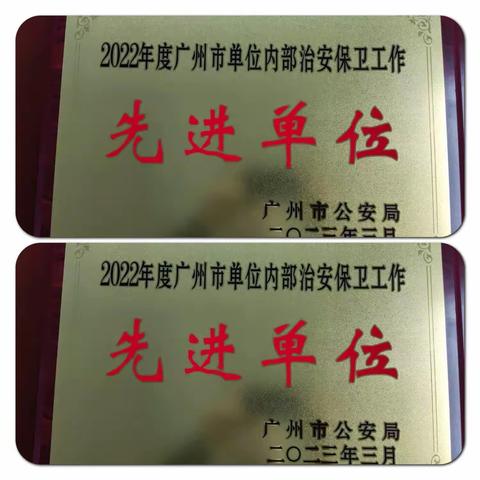 2022年度广州市单位内部治安保卫工作
先进单位
广州市公安局
二〇二三年三月
2022年度广州市单位内部治安保卫工作
先进单位
广州市公安局
二〇二三年三月